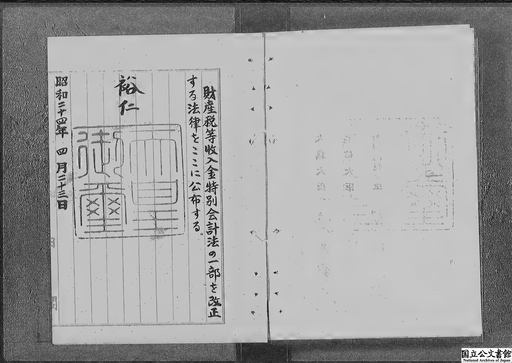 財産税等收入金特別会計法の一部を改正
する法律をここに公布する
裕仁
天皇
御璽
昭和二十四年四月二十三日
国立公文書館
National Archives of Japan